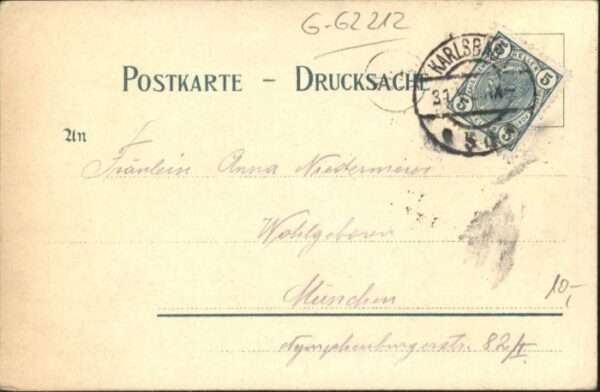 G-62212
POSTKARTE – DRUCKSACHE
KARLSBA
5 HELLER 5
5 5
An
Fräulein Anna Niedermeier
Wohlgeboren
München
10,-
Nymphenburgerstr. 82/II